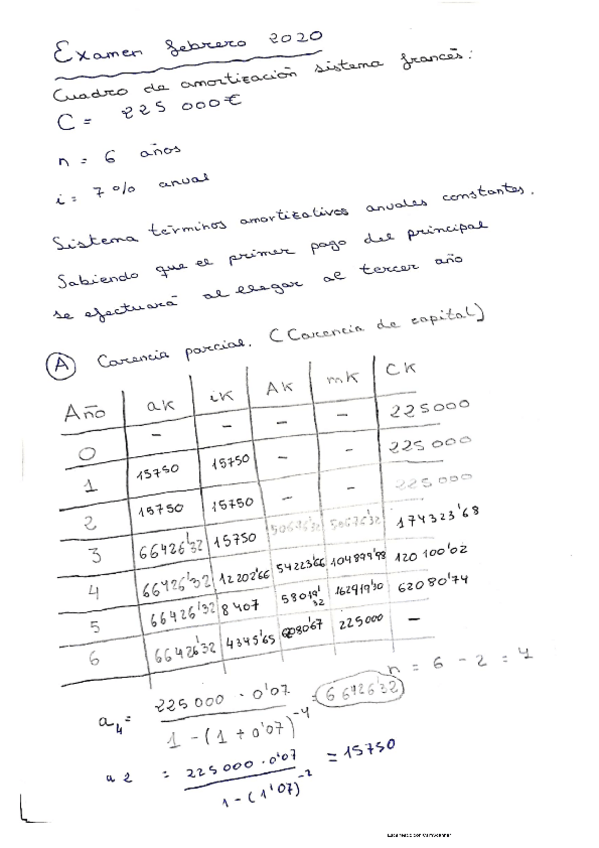 Examen febrero 2020
Cuadro de amortización sistema francés:
C = 225 000€
n = 6 años
i = 7% anual
Sistema términos amortizativos anuales constantes.
Sabiendo que el primer pago del principal
se efectuará al llegar al tercer año
A Carencia parcial. (Carencia de capital)
Año aK iK AK mK CK
0 - - - - 225000
1 15750 15750 - - 225 000
2 15750 15750 - - 225 000
3 66426'32 15750 50676'32 50676'32 174323'68
4 66426'32 12202'66 54223'66 104899'98 120 100'02
5 66426'32 8407 58019'32 162919'30 62080'74
6 66426'32 4345'65 62080'67 225000 -
n = 6 - 2 = 4
a4 = 225 000 · 0'07 / 1 - (1 + 0'07)^-4 = 66426'32
a2 = 225000 · 0'07 / 1 - (1'07)^-2 = 15750